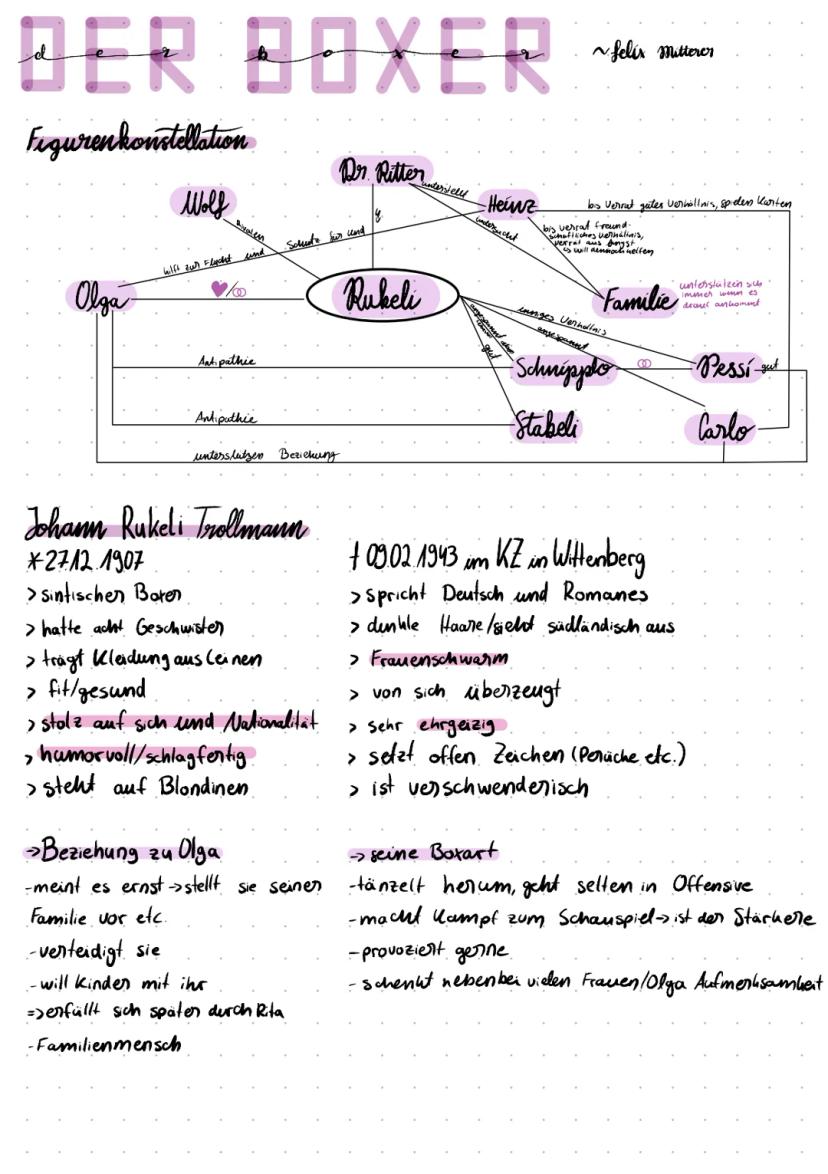 DER BOXER
der boxer
~felix Mitterer
Figurenkonstellation
Dr. Ritter
Wolf
Heinz
unterstellt
bis Verrat gutes Verhältnis, spielen Karten
Rivalen
untersucht
bis verrat freund-
schaftliches verhältnis,
verrat aus Angst
will dennoch helfen
hilft zur Flucht und Schutz für Kind
Olga
Rukeli
Familie
unterstützen sich
immer wenn es
drauf ankommt
inniges Verhältnis
angespannt
gut
Antipathie
Schnipplo
Pessi
gut
Antipathie
Stabeli
Carlo
unterstützen Beziehung
Johann Rukeli Trollmann
*27.12.1907
† 09.02.1943 im KZ in Wittenberg
> sintischer Boxer
> spricht Deutsch und Romanes
> hatte acht Geschwister
> dunkle Haare/sieht südländisch aus
> trägt Kleidung aus Leinen
> Frauenschwarm
> fit/gesund
> von sich überzeugt
> stolz auf sich und Nationalität
> sehr ehrgeizig
> humorvoll/schlagfertig
> setzt offen Zeichen (Perücke etc.)
> steht auf Blondinen
> ist verschwenderisch
→Beziehung zu Olga
-meint es ernst→stellt sie seiner
Familie vor etc.
-verteidigt sie
-will Kinder mit ihr
=>erfüllt sich später durch Rita
-Familienmensch
→seine Boxart
-tänzelt herum, geht selten in Offensive
-macht Kampf zum Schauspiel→ist der Stärkere
-provoziert gerne
-schenkt nebenbei vielen Frauen/Olga Aufmerksamkeit